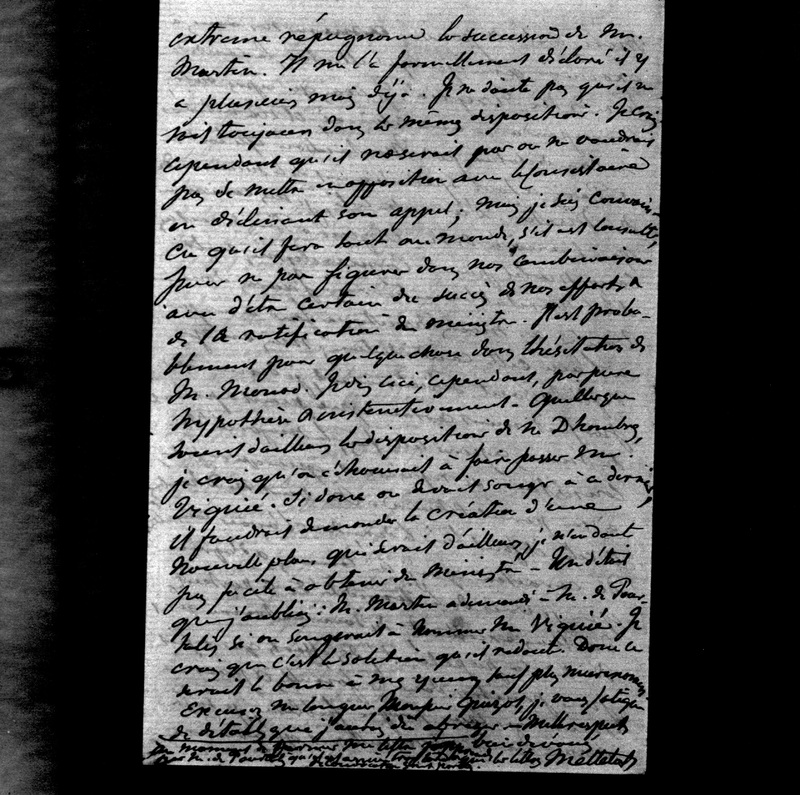 extreme répugnance la succession de M.
Martin. Il me l'a formellement déclaré il y
a plusieurs mois déjà. Je ne doute pas qu'il ne
soit toujours dans les mêmes dispositions. Je crois
cependant qu'il n'oserait pas ou ne voudrait
pas se mettre en opposition avec le Consistoire
en déclinant son appel; mais je suis convain-
cu qu'il fera tout au monde, s'il est consulté,
pour ne pas figurer dans nos combinaisons
avant d'être certain du succès de nos efforts &
de la ratification du ministre. Il est proba-
blement pour quelque chose dans l'hésitation de
M. Monod. Je dis ceci, cependant, par pure
hypothèse & instinctivement. Quelles que
soient d'ailleurs les dispositions de M. Dhombres,
je crois qu'on échouerait à faire passer M.
Viguié. Si donc on devait songer à ce dernier,
il faudrait demander la création d'une
nouvelle place, qui serait d'ailleurs, je n'en doute
pas, facile à obtenir du Ministre. Un détail
que j'oubliais: M. Martin a demandé à M. de Pour-
talès si on songerait à nommer M. Viguié. Je
crois que c'est la solution qu'il redoute. Donc ce
serait la bonne à mes yeux,
Excusez ma longueur Monsieur Guizot, je vous fatigue
de détails que j'aurais dû abréger. Mille respects
Au moment de fermer ma lettre
par M. de Pourtalès qu'il
Mettetal